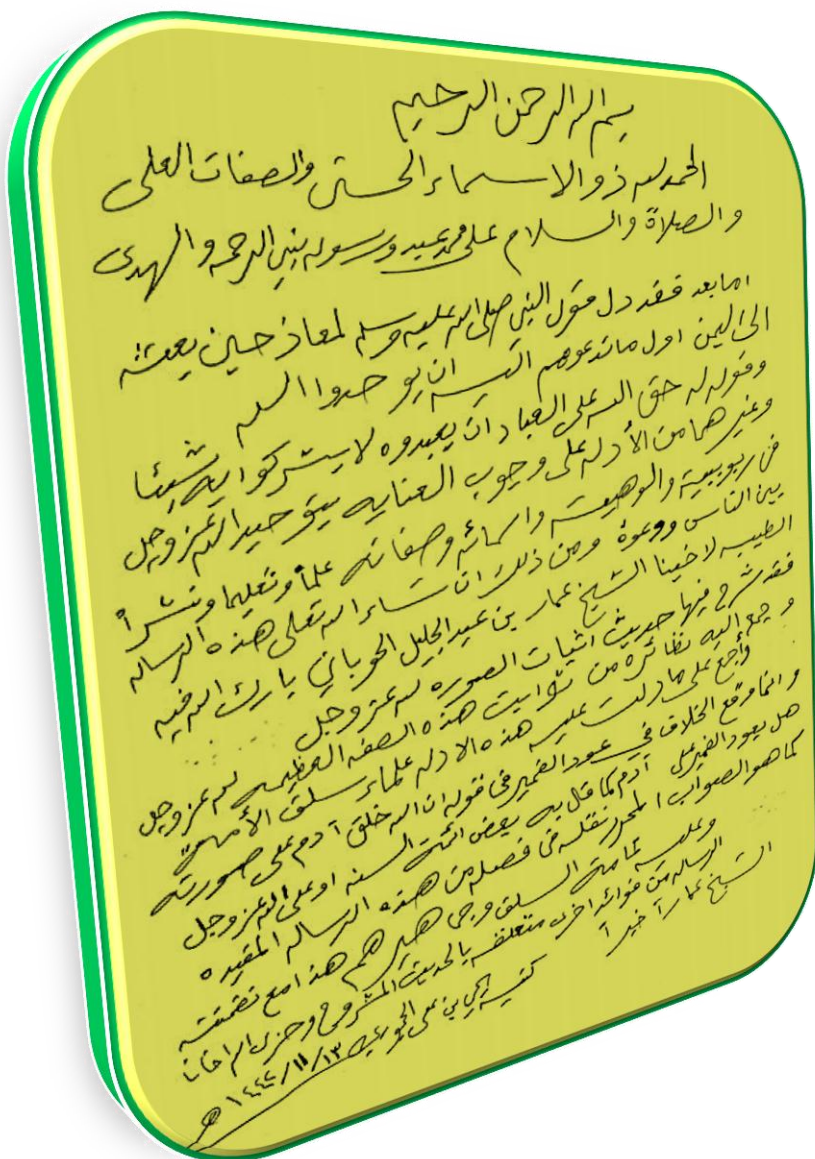 بسم الله الرحمن الرحيم
الحمد لله ذو الاسماء الحسنى والصفات العلى
والصلاة والسلام على محمد عبده ورسوله نبي الرحمه والهدى
اما بعد فقد دل قول النبي صلى الله عليه وسلم لمعاذ حين بعثه
الى اليمن اول ما تدعوهم اليه ان يوحدوا الله
وقوله له حق الله على العباد ان يعبدوه لا يشركوا به شيئا
وغيرهما من الأدله على وجوب العنايه بتوحيد الله عز وجل
في ربوبيته والوهيته واسمائه وصفاته علماً وتعليما ونشراً
بين الناس ودعوة ومن ذلك ان شاء الله تعلى هذه الرساله
الطيبه لاخينا الشيخ عمار بن عبد الجليل الحوباني بارك الله فيه
فقد شرح فيها حديث اثبات الصوره لله عز وجل
وجمع اليه نظائره من ثوابت هذه الصفه العظيمه لله عز وجل
وأجمع على ما دلت عليه هذه الادله علماء سلف الأمه
وانما وقع الخلاف في عود الضمير في قوله ان الله خلق آدم على صورته
هل يعود الضمير على آدم كما قال به بعض ائمة السنه او على الله عز وجل
كما هو الصواب المحرر نقله في فصله من هذه الرساله المفيده
وعليه عامة السلف وجماهيرهم هذا مع تضمنته
الرساله من فوائد اخرى متعلقه بالحديث المشروح وجزى الله اخانا
الشيخ عمارا خيراً
كتبه يحيى بن علي الحجوري ١٤٤٢/١١/١٣ هـ